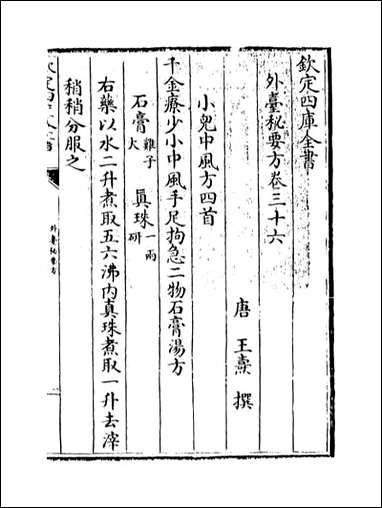 欽定四庫全書
外臺秘要方卷三十六
唐 王燾 撰
小兒中風方四首
千金療少小中風手足拘急二物石膏湯方
石膏雞子大 真珠一兩研
右藥以水二升煮取五六沸内真珠煮取一升去滓
稍稍分服之
外臺秘要方